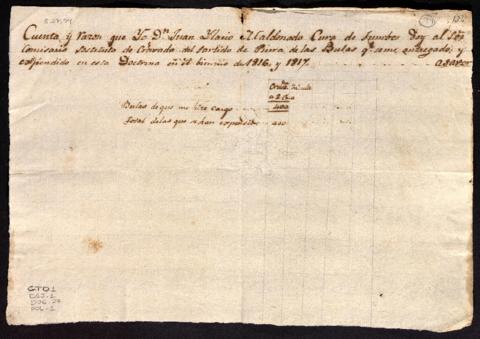 Cuenta, y razon que Yo Dn. Juan Ylario Maldonado Cura de Tumbes doy al Sor.
Comisario Sostituto de Cruzada del Partido de Piura de las Bulas qe. ame entregado, y
espendido en esta Doctrina en el bienio de 1816 y 1817
a saver
a 2
400
Bulas de que me hise cargo
Total de las que se han expendido
400
GTO1
CAJ-1
DOC-27
FOL-1